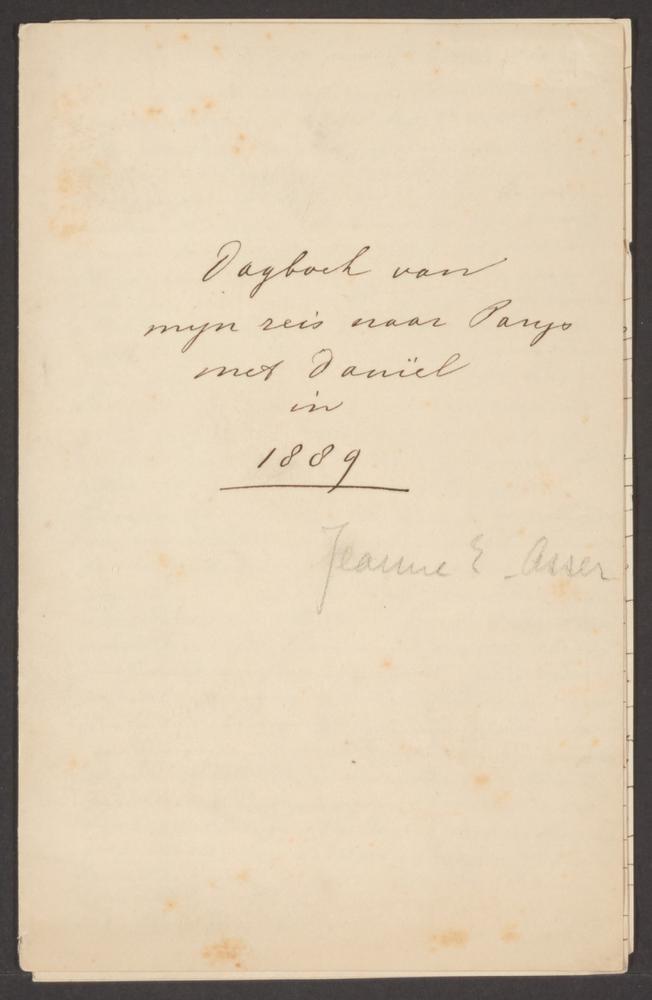 Dagboek van
mijn reis naar Parijs
met Daniël
in
1889
Jeanne E. Asser